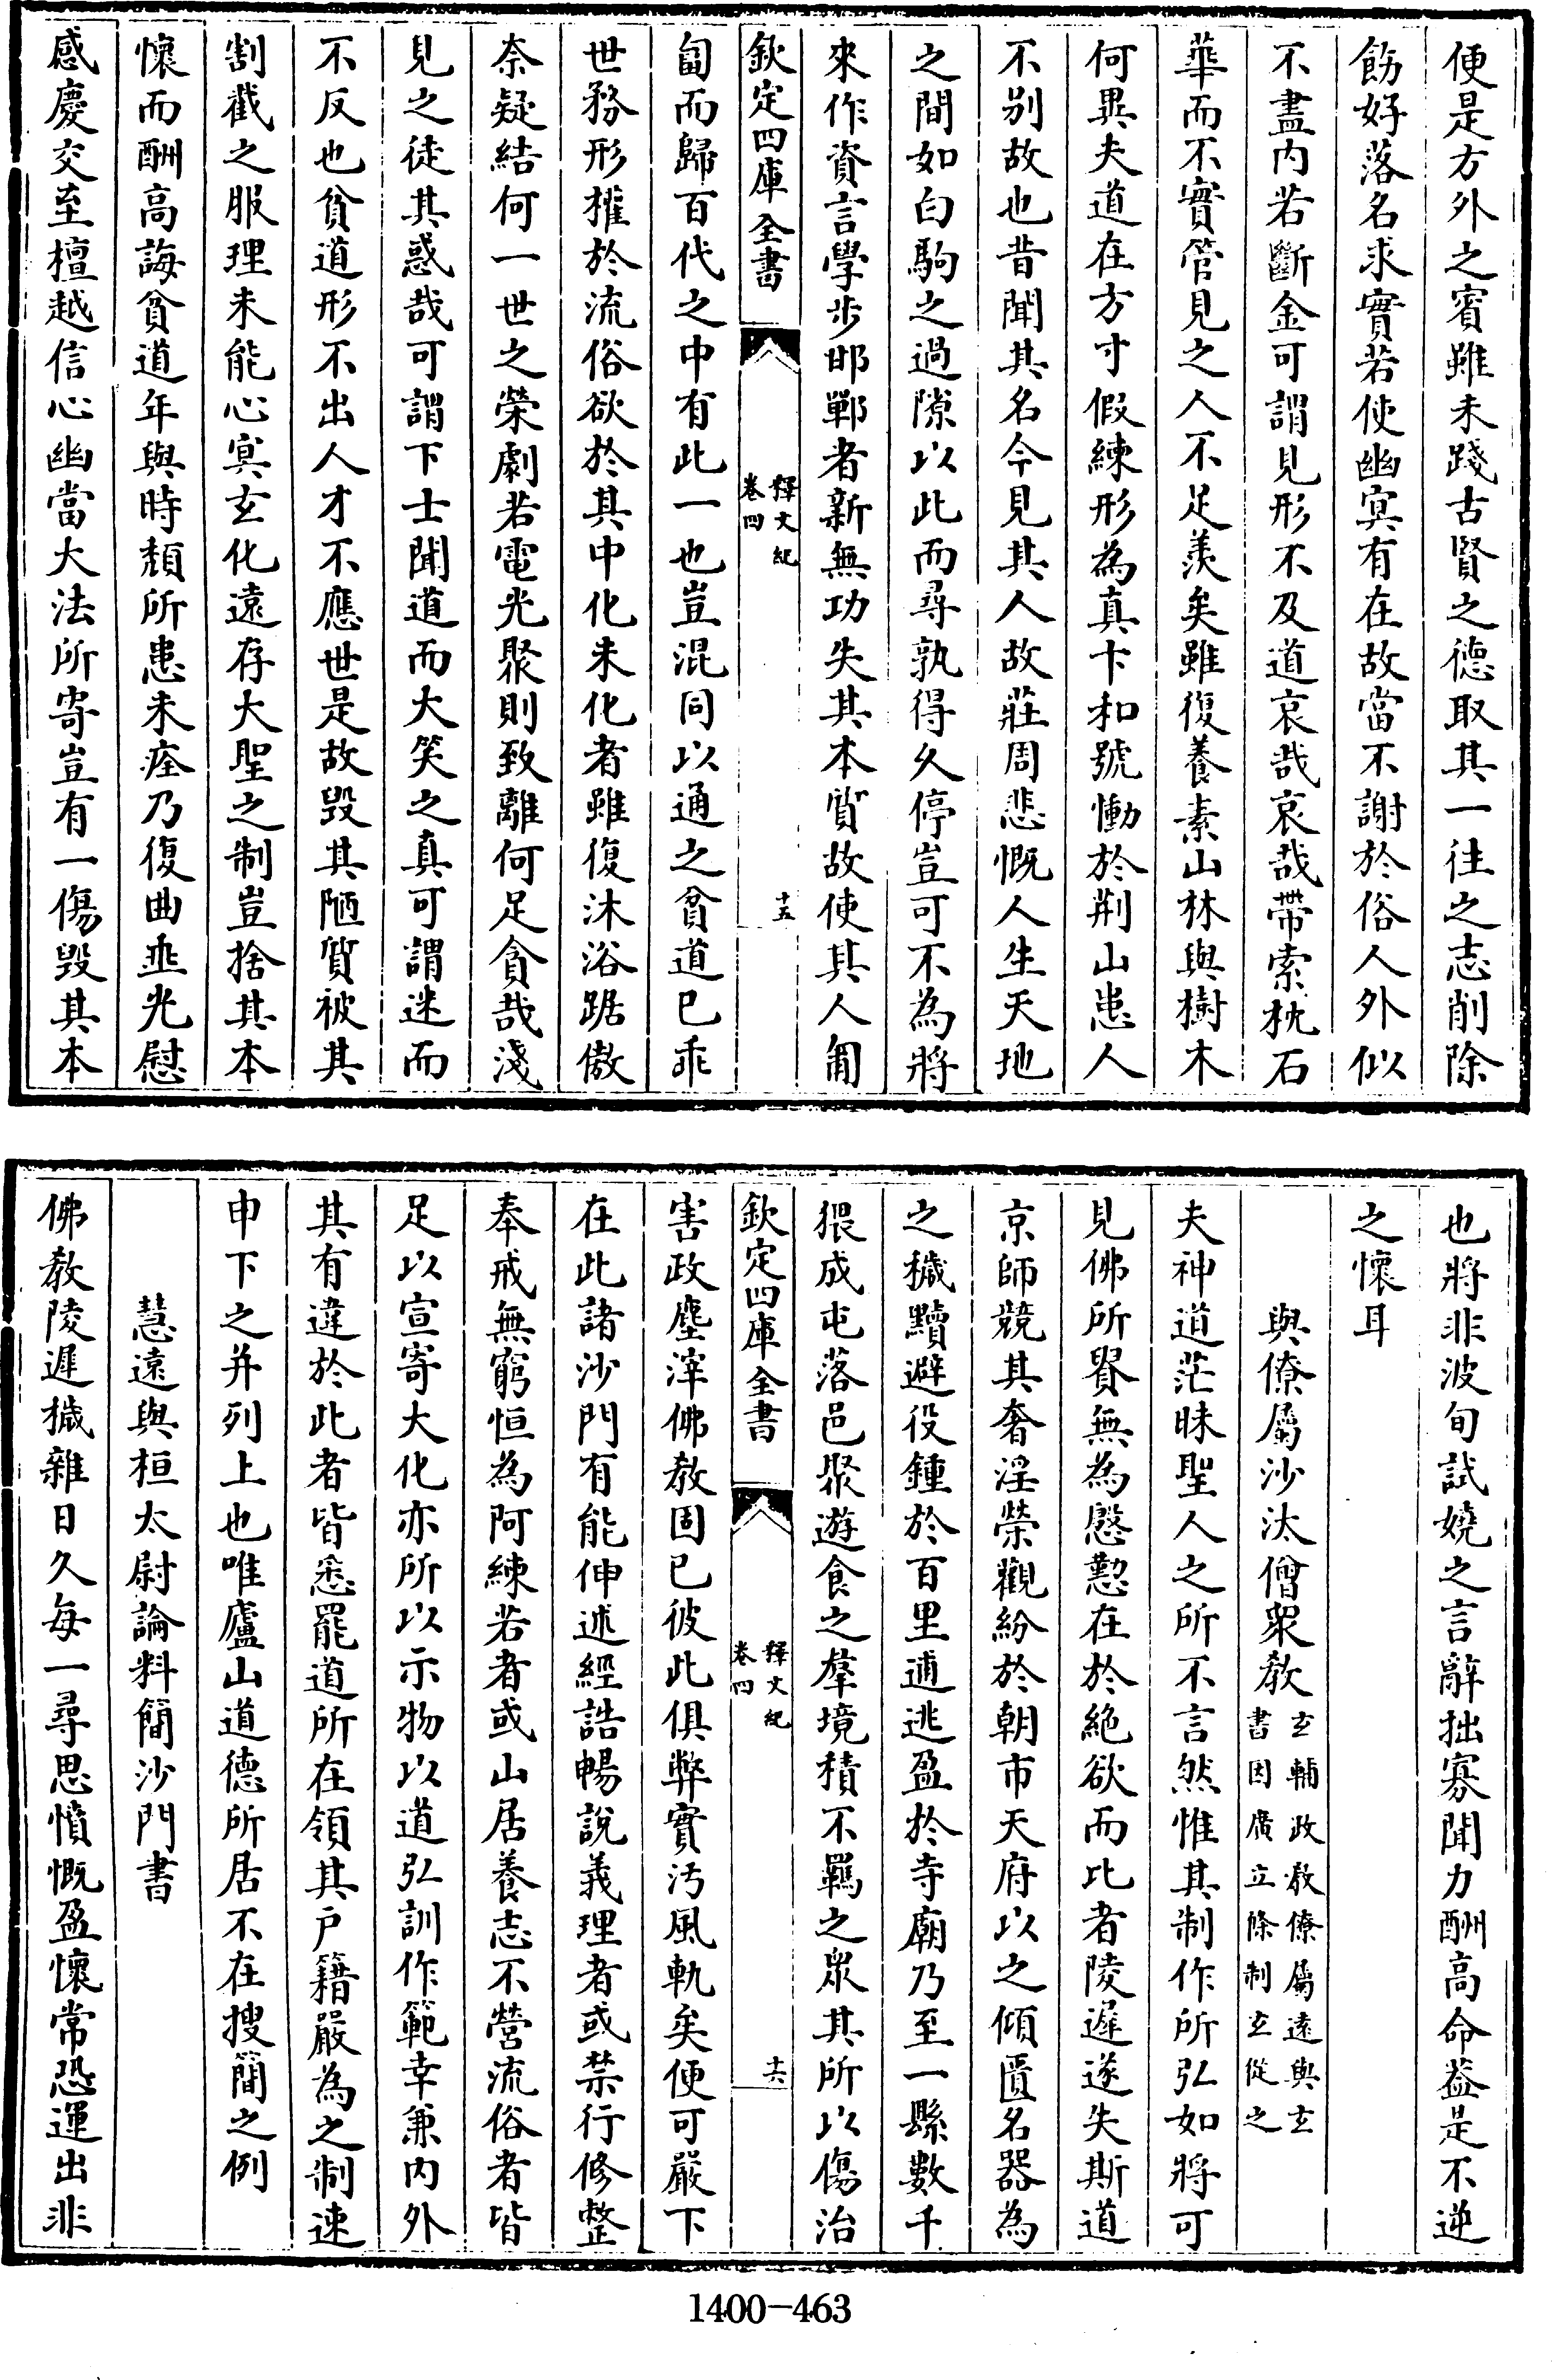 便是方外之賓雖未踐古賢之德取其一往之志削除
飭好落名求實若使幽冥有在故當不謝於俗人外似
不盡内若斷金可謂見形不及道哀哉哀哉帶索枕石
華而不實管見之人不足羨矣雖復養素山林與樹木
何異夫道在方寸假練形為真卞和號慟於荆山患人
不别故也昔聞其名今見其人故莊周悲慨人生天地
之間如白駒之過隙以此而尋孰得久停豈可不為將
來作資言學步邯鄲者新無功失其本質故使其人匍
欽定四庫全書
釋文紀
卷四
十五
匐而歸百代之中有此一也豈混同以通之貧道已乖
世務形權於流俗欲於其中化未化者雖復沐浴踞傲
奈疑結何一世之榮劇若電光聚則致離何足貪哉淺
見之徒其惑哉可謂下士聞道而大笑之真可謂迷而
不反也貧道形不出人才不應世是故毁其陋質被其
割截之服理未能心冥玄化遠存大聖之制豈捨其本
懷而酬高誨貧道年與時頽所患未痊乃復曲垂光慰
感慶交至檀越信心幽當大法所寄豈有一傷毁其本
也將非波旬試嬈之言辭拙寡聞力酬高命葢是不逆
之懷耳
與僚屬沙汰僧衆教
玄輔政教僚屬遠與玄
書因廣立條制玄從之
夫神道茫昧聖人之所不言然惟其制作所弘如將可
見佛所貴無為慇懃在於絶欲而比者陵遲遂失斯道
京師競其奢淫榮觀紛於朝市天府以之傾匱名器為
之穢黷避役鍾於百里逋逃盈於寺廟乃至一縣數千
猥成屯落邑聚遊食之羣境積不羈之衆其所以傷治
欽定四庫全書
釋文紀
卷四
十六
害政塵滓佛教固已彼此俱弊實汚風軌矣便可嚴下
在此諸沙門有能伸述經誥暢說義理者或禁行修整
奉戒無窮恒為阿練若者或山居養志不營流俗者皆
足以宣寄大化亦所以示物以道弘訓作範幸兼内外
其有違於此者皆悉罷道所在領其戸籍嚴為之制速
申下之并列上也唯廬山道德所居不在搜簡之例
慧遠與桓太尉論料簡沙門書
佛教陵遲穢雜日久每一尋思憤慨盈懷常恐運出非
1400-463